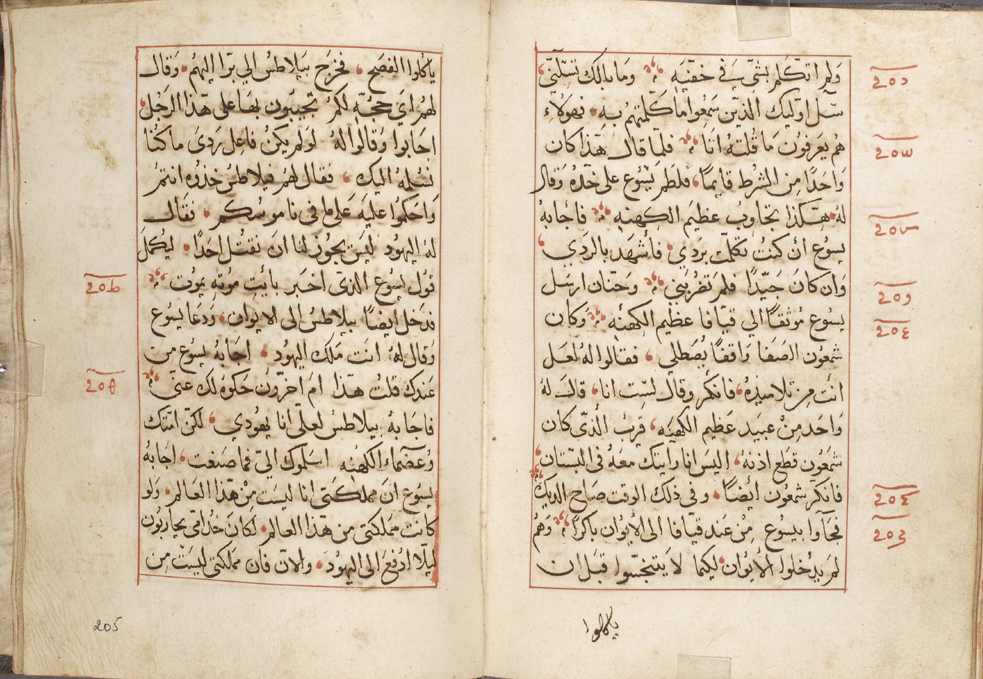 ولم اتكلم بشي في خفيه ؞ وما بالك تسلني
سل اوليك الذين سمعوا ما كلمتهم به ، فهولاء
هم يعرفون ما قلته انا ؞ فلما قال هذا كان
واحدًا من الشرط قايمًا ، فلطم يسوع على خده وقال
له ، هكذا تجاوب عظيم الكهنه ؞ فاجابه
يسوع ان كنت تكلمت بردي ، فاشهد بالردي ،
وان كان جيدًا فلم تضربني ؞ وحنان ارسل
يسوع موثقًا الي قيافا عظيم الكهنه ؞ وكان
شمعون الصفا واقفًا يصطلي ، فقالوا له لعل
انت من تلاميذه ، فانكر وقال لست انا ، قال له
واحد من عبيد عظيم الكهنه ، قريب الذي كان
شمعون قطع اذنه ، اليس انا رايتك معه في البستان ؞
فانكر شمعون ايضًا ، وفي ذلك الوقت صاح الديك
فجاوا بيسوع من عند قيافا الى الايوان باكرًا ؞ وهم
لم يدخلوا الايوان لكيما لا يتنجسوا قبل ان
ياكلوا
ياكلوا الفصح ، فخرج بيلاطس الي برا اليهم ، وقال
لهم اي حجه لكم تجيبون بها على هذا الرجل ،
اجابوا وقالوا له لو لم يكن فاعل ردي ما كنا
نسلمه اليك ، فقال لهم فيلاطس خذوه انتم
واحكموا عليه على ما في ناموسكم ، فقال
له اليهود ليس يجوز لنا ان نقتل احدًا ، ليكمل
قول يسوع الذي اخبر بايت موته يموت ؞
فدخل ايضًا بيلاطس الى الايوان ، ودعا يسوع
وقال له انت ملك اليهود ، اجابه يسوع من
عندك قلت هذا ام اخرون حكوه لك عني ؞
فاجابه بيلاطس لعلي انا يهودي ، لكن امتك
وعظماء الكهنه اسلموك الي فما صنعت ، اجابه
يسوع ان مملكتي انا ليست من هذا العالم ، ولو
كانت مملكتي من هذا العالم ، لكان خدامي يحاربون
ليلا ادفع الى اليهود ، والان فان مملكتي ليست من
205